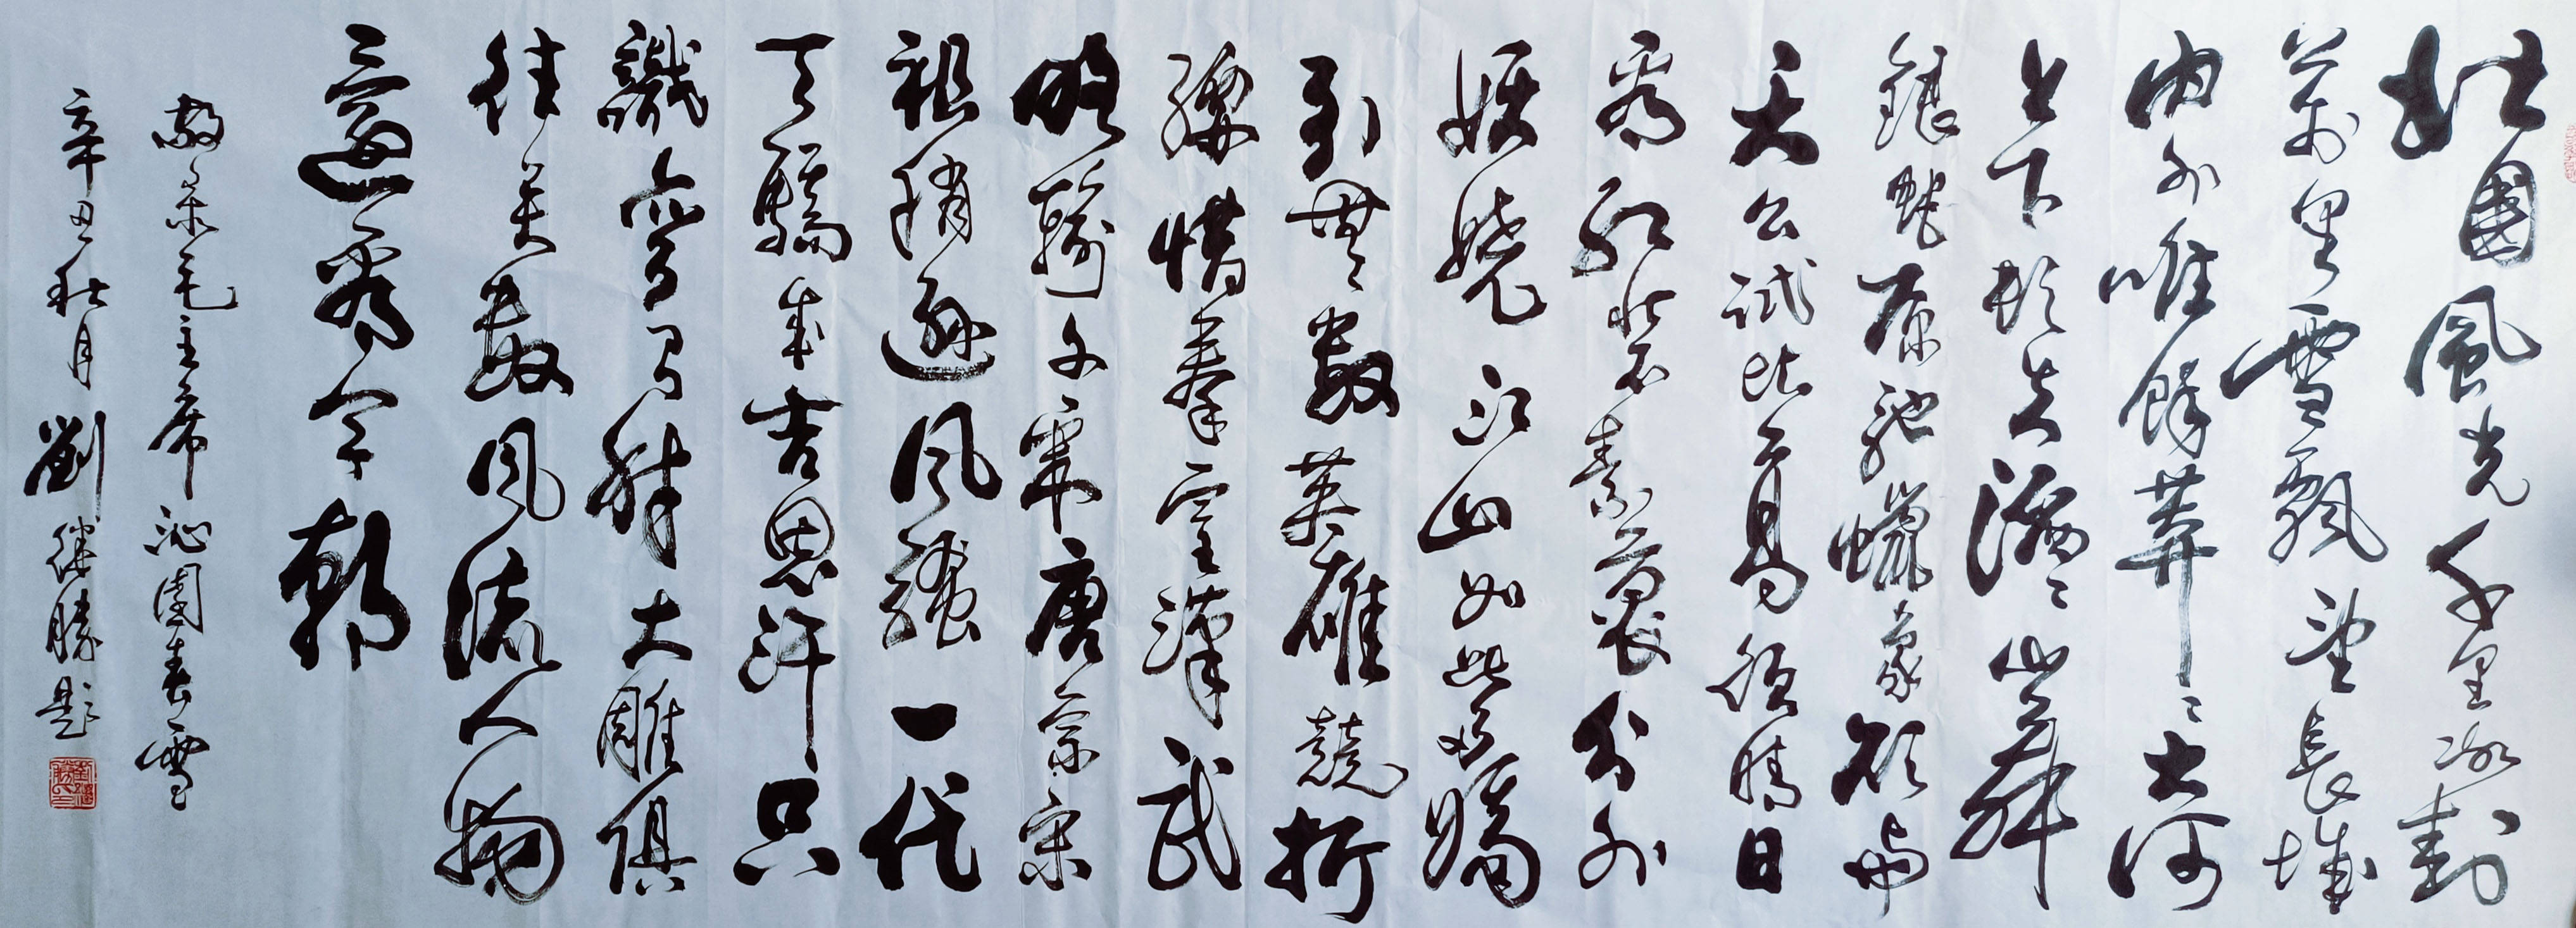 北國風光千里冰封
萬里雪飄望長城
内外唯餘莽〻大河
上下頓失滔〻山舞
銀蛇原馳蠟象欲與
天公試比高須晴日
看紅裝素裹分外
妖嬈江山如此多嬌
引無數英雄競折
腰惜秦皇漢武
略輸文采唐宗宋
祖稍遜风騷一代
天驕成吉思汗只
識彎弓射大雕俱
往矣數风流人物
還看今朝
敬录毛主席沁園春雪
辛丑秋月劉继勝题